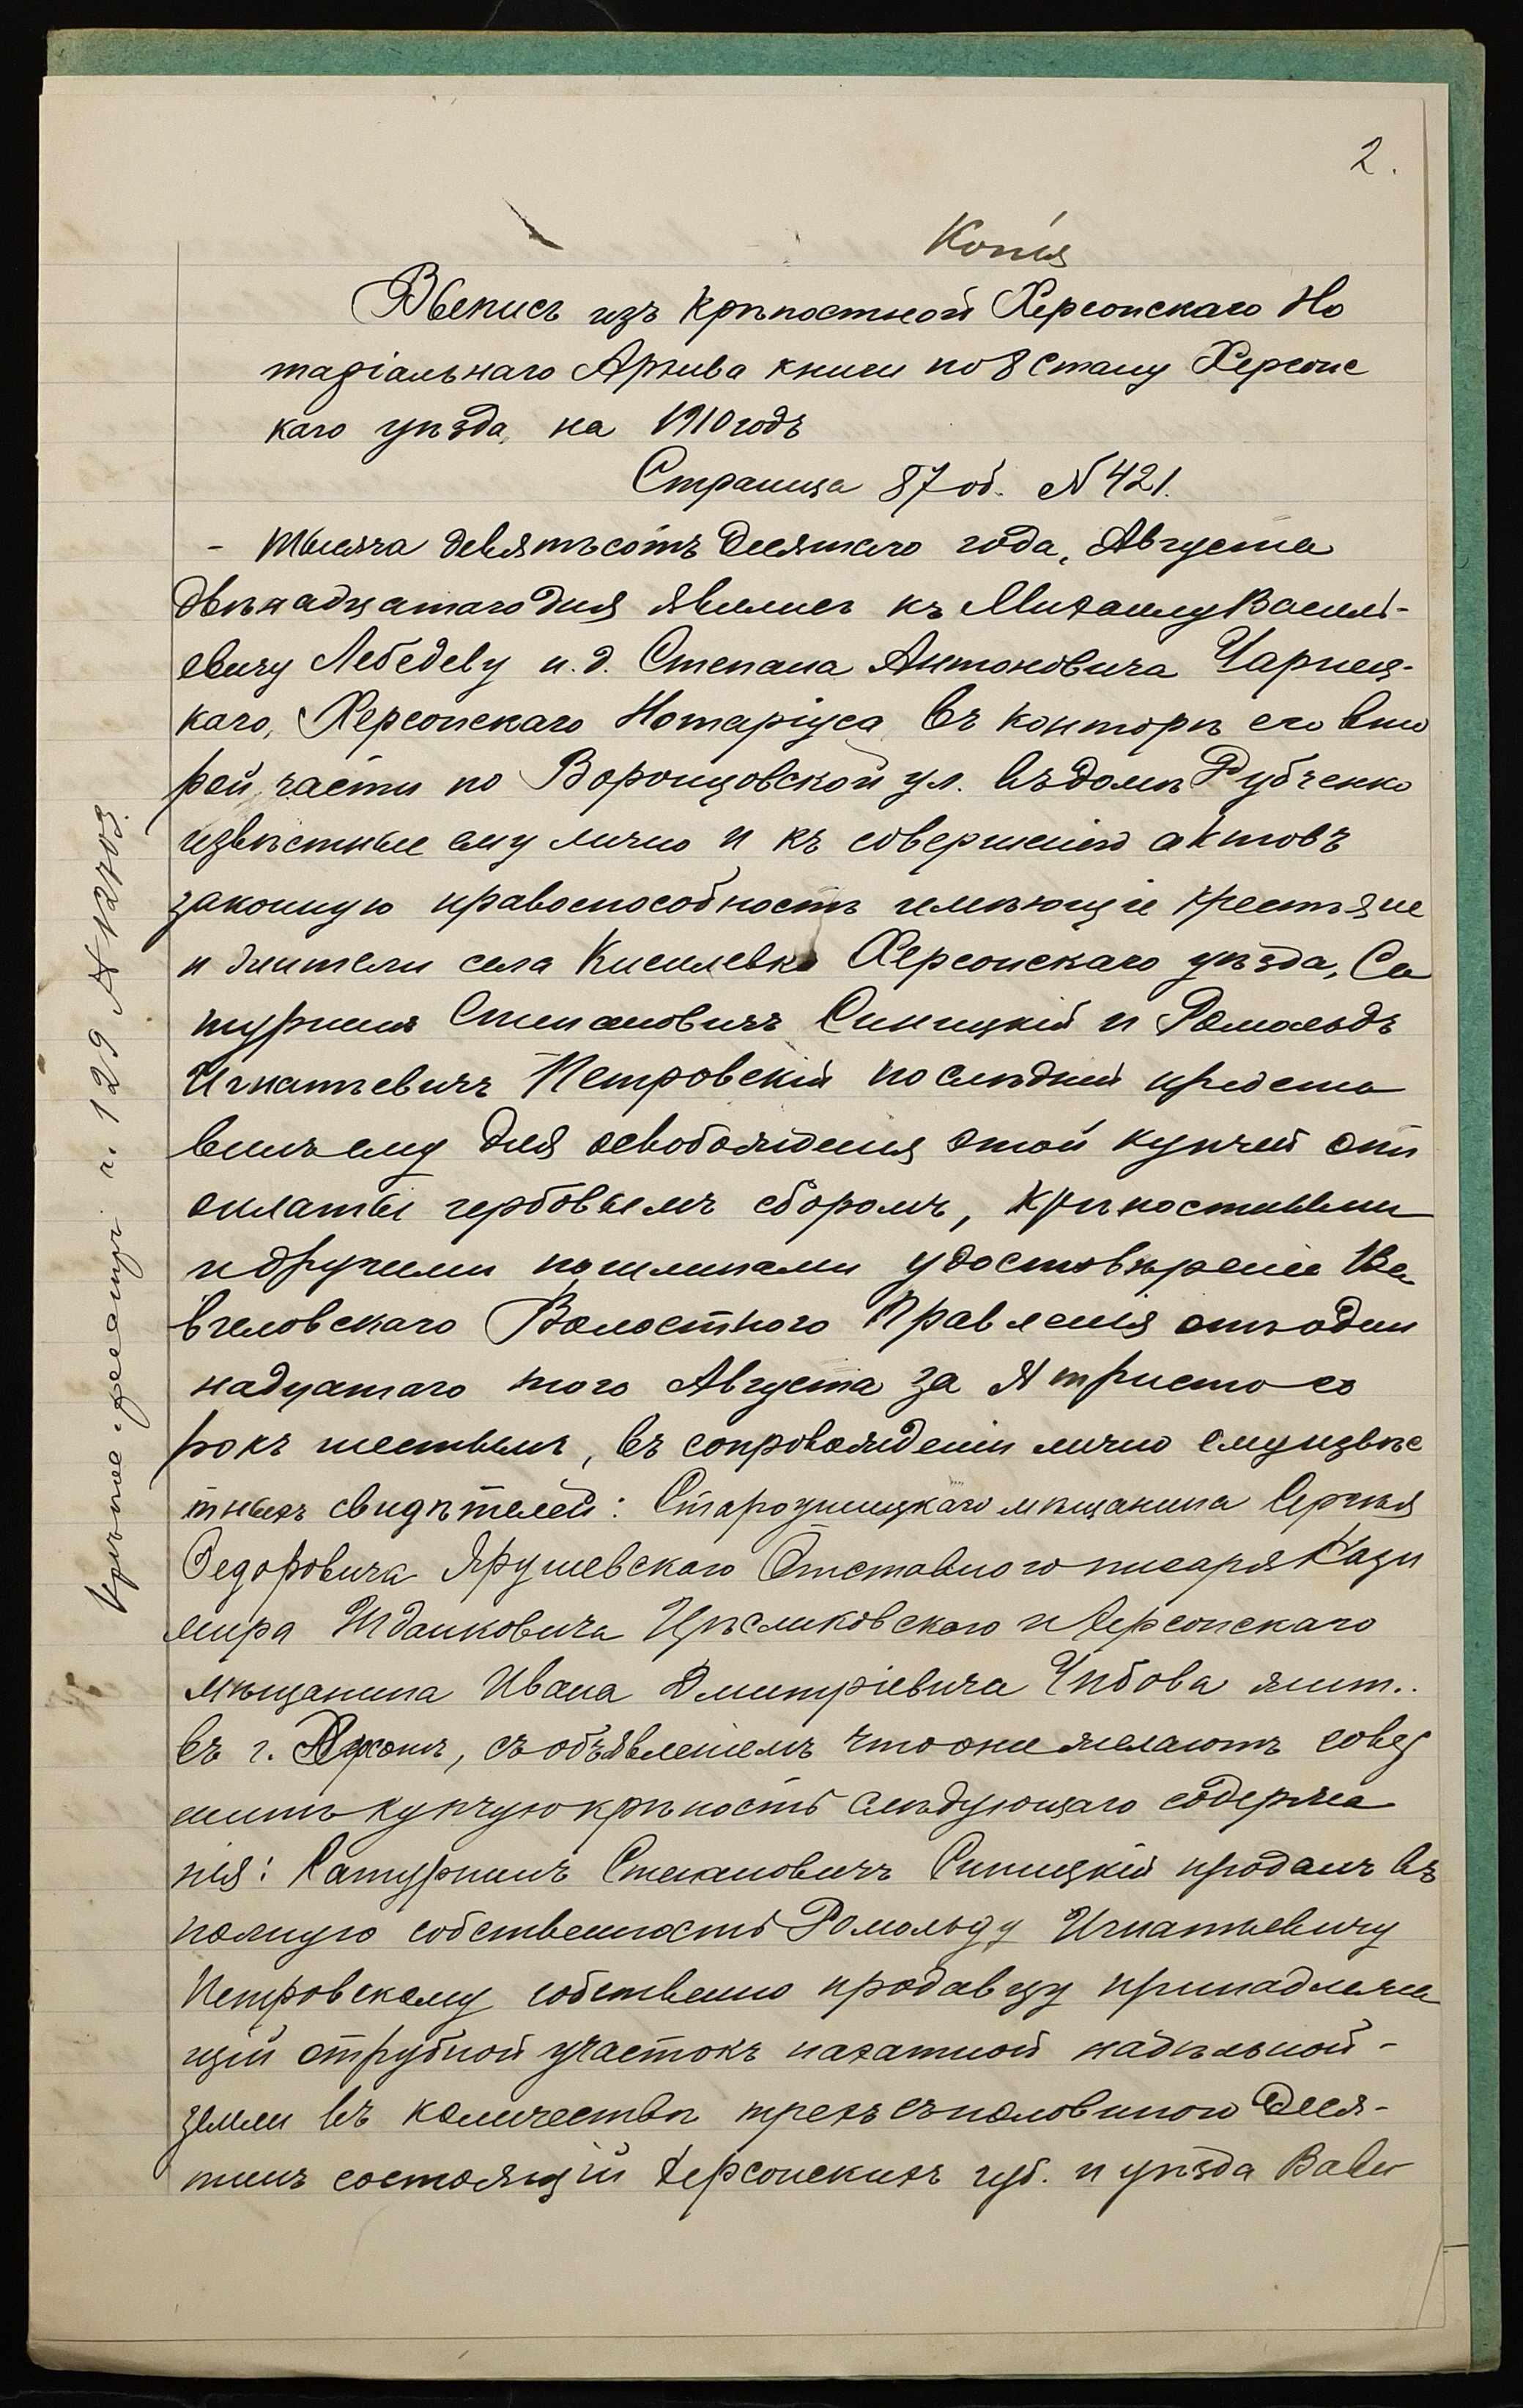 2.
Копія
Выпись изъ крѣпостной Херсонскаго Но
таріальнаго Архива книги по 8 стану Херсонс
каго уѣзда, на 1910 годъ
Страница 87 об. № 421.
- Тысяча девятьсотъ десятаго года, Августа
двѣнадцатаго дня явились къ Михаилу Василь-
евичу Лебедеву и. д. Степана Антоновича Чарнец-
каго, Херсонскаго Нотаріуса въ конторѣ его вто
рой части по Воронцовской ул. въ домѣ Рубченко
извѣстные ему лично и къ совершенію актовъ
законную правоспособность имѣющіе крестьяне
и жители села Киселевка Херсонскаго уѣзда, Са
турнинъ Степановичъ Синицкій и Ромольдъ
Игнатьевичъ Петровскій послѣдній предста
вилъ ему для освобожденія этой купчей отъ
оплаты гербовымъ сборомъ, крѣпостными
и другими пошлинами удостовѣреніе
Волостного Правленія отъ один
надцатаго того Августа за № триста со
рокъ шестымъ, въ сопровожденіи лично ему извѣс
тныхъ свидѣтелей: Староушицкаго мѣщанина Сергѣя
Ѳедоровича Ярушевскаго Отставного писаря Кази
мира Ждановича и Херсонскаго
мѣщанина Ивана Дмитріевича Чибова жит..
въ г. Херсонѣ, съ объявленіемъ что они желаютъ совер
шить купчую крѣпость слѣдующаго содержа
нія: Сатурнинъ Степановичъ Синицкій продалъ въ
полную собственность Ромольду Игнатьевичу
Петровскому собственно продавцу принадлежа
щій отрубной участокъ пахатной надѣльной-
земли въ количествѣ трехъ съ половиною деся-
тинъ состоящій Херсонскихъ губ. и уѣзда Вави
Крѣпостн. реестръ ч. 129 № 12703.